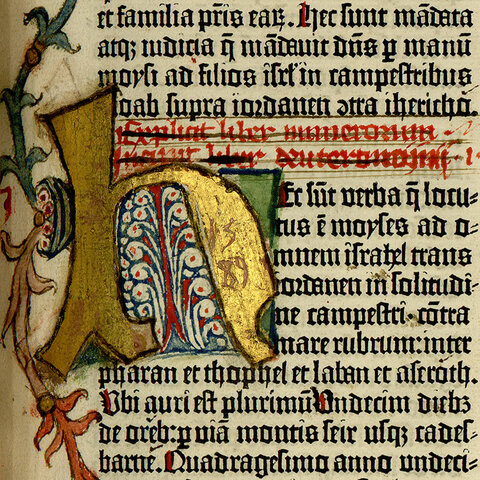 et familia pr̄is eaꝝ. Hec sunt mādata
atqꝫ iudicia q̄ mādauit dn̄s ꝑ manū
moysi ad filios isrl̄ in campestribus
moab supra iordanen ↄtra ihericho.
Explicit liber numerorum
Incipit liber deuteronomij · 1
HEc sūt verba q̄ locu=
tus ē moyses ad o=
mnem israhel trans
iordanen in solitudi=
ne campestri· cōtra
mare rubrum: inter
pharan et thophel et laban et aseroth.
Ubi auri est plurimū Undecim diebꝫ
de oreb: ꝑ viā montis seir usqꝫ cades=
barne. Quadragesimo anno undeci=
15
89